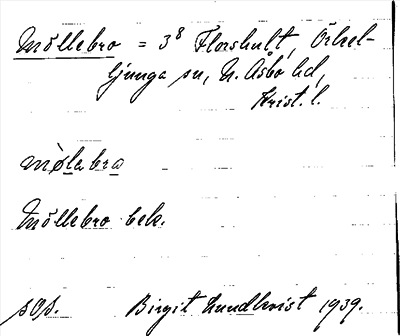 Möllebro = 3⁸ Florshult, Örkel-
ljunga sn, N. Åsbo hd,
Krist. l.
mø̀la bra
Möllebro bek.
sOs. Birgit Lundkvist 1939.